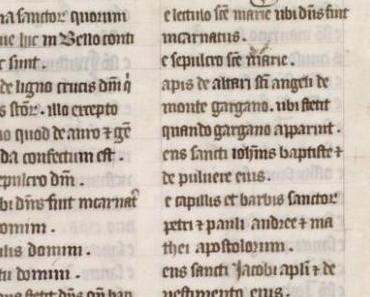 na sanctor quorum
ue hic in Bello conti
c sunt.
de ligno crucis dm̄ q̇
s stōr. illo excepto
o quod de auro ⁊ gē
da confectum est.
epulcro dm̄.
bi dn̄s fuit incarnat᷒
omini.
ulis domini.
tu domini.
e lectulo sc̄e marie ubi dn̄s fuit
incarnatus.
e sepulcro sc̄e marie.
apis de altari sc̄i angeli de
monte gargano. ubi stetit
quando gargano apparuit.
ens sancti ioh̄nis baptiste ⁊
de puluere eius.
e capillis et barbis sanctor
petri ⁊ pauli andree ⁊ ma
thei apostolorum.
ens sancti Jacobi apl̄i ⁊ de
uestimento eius.